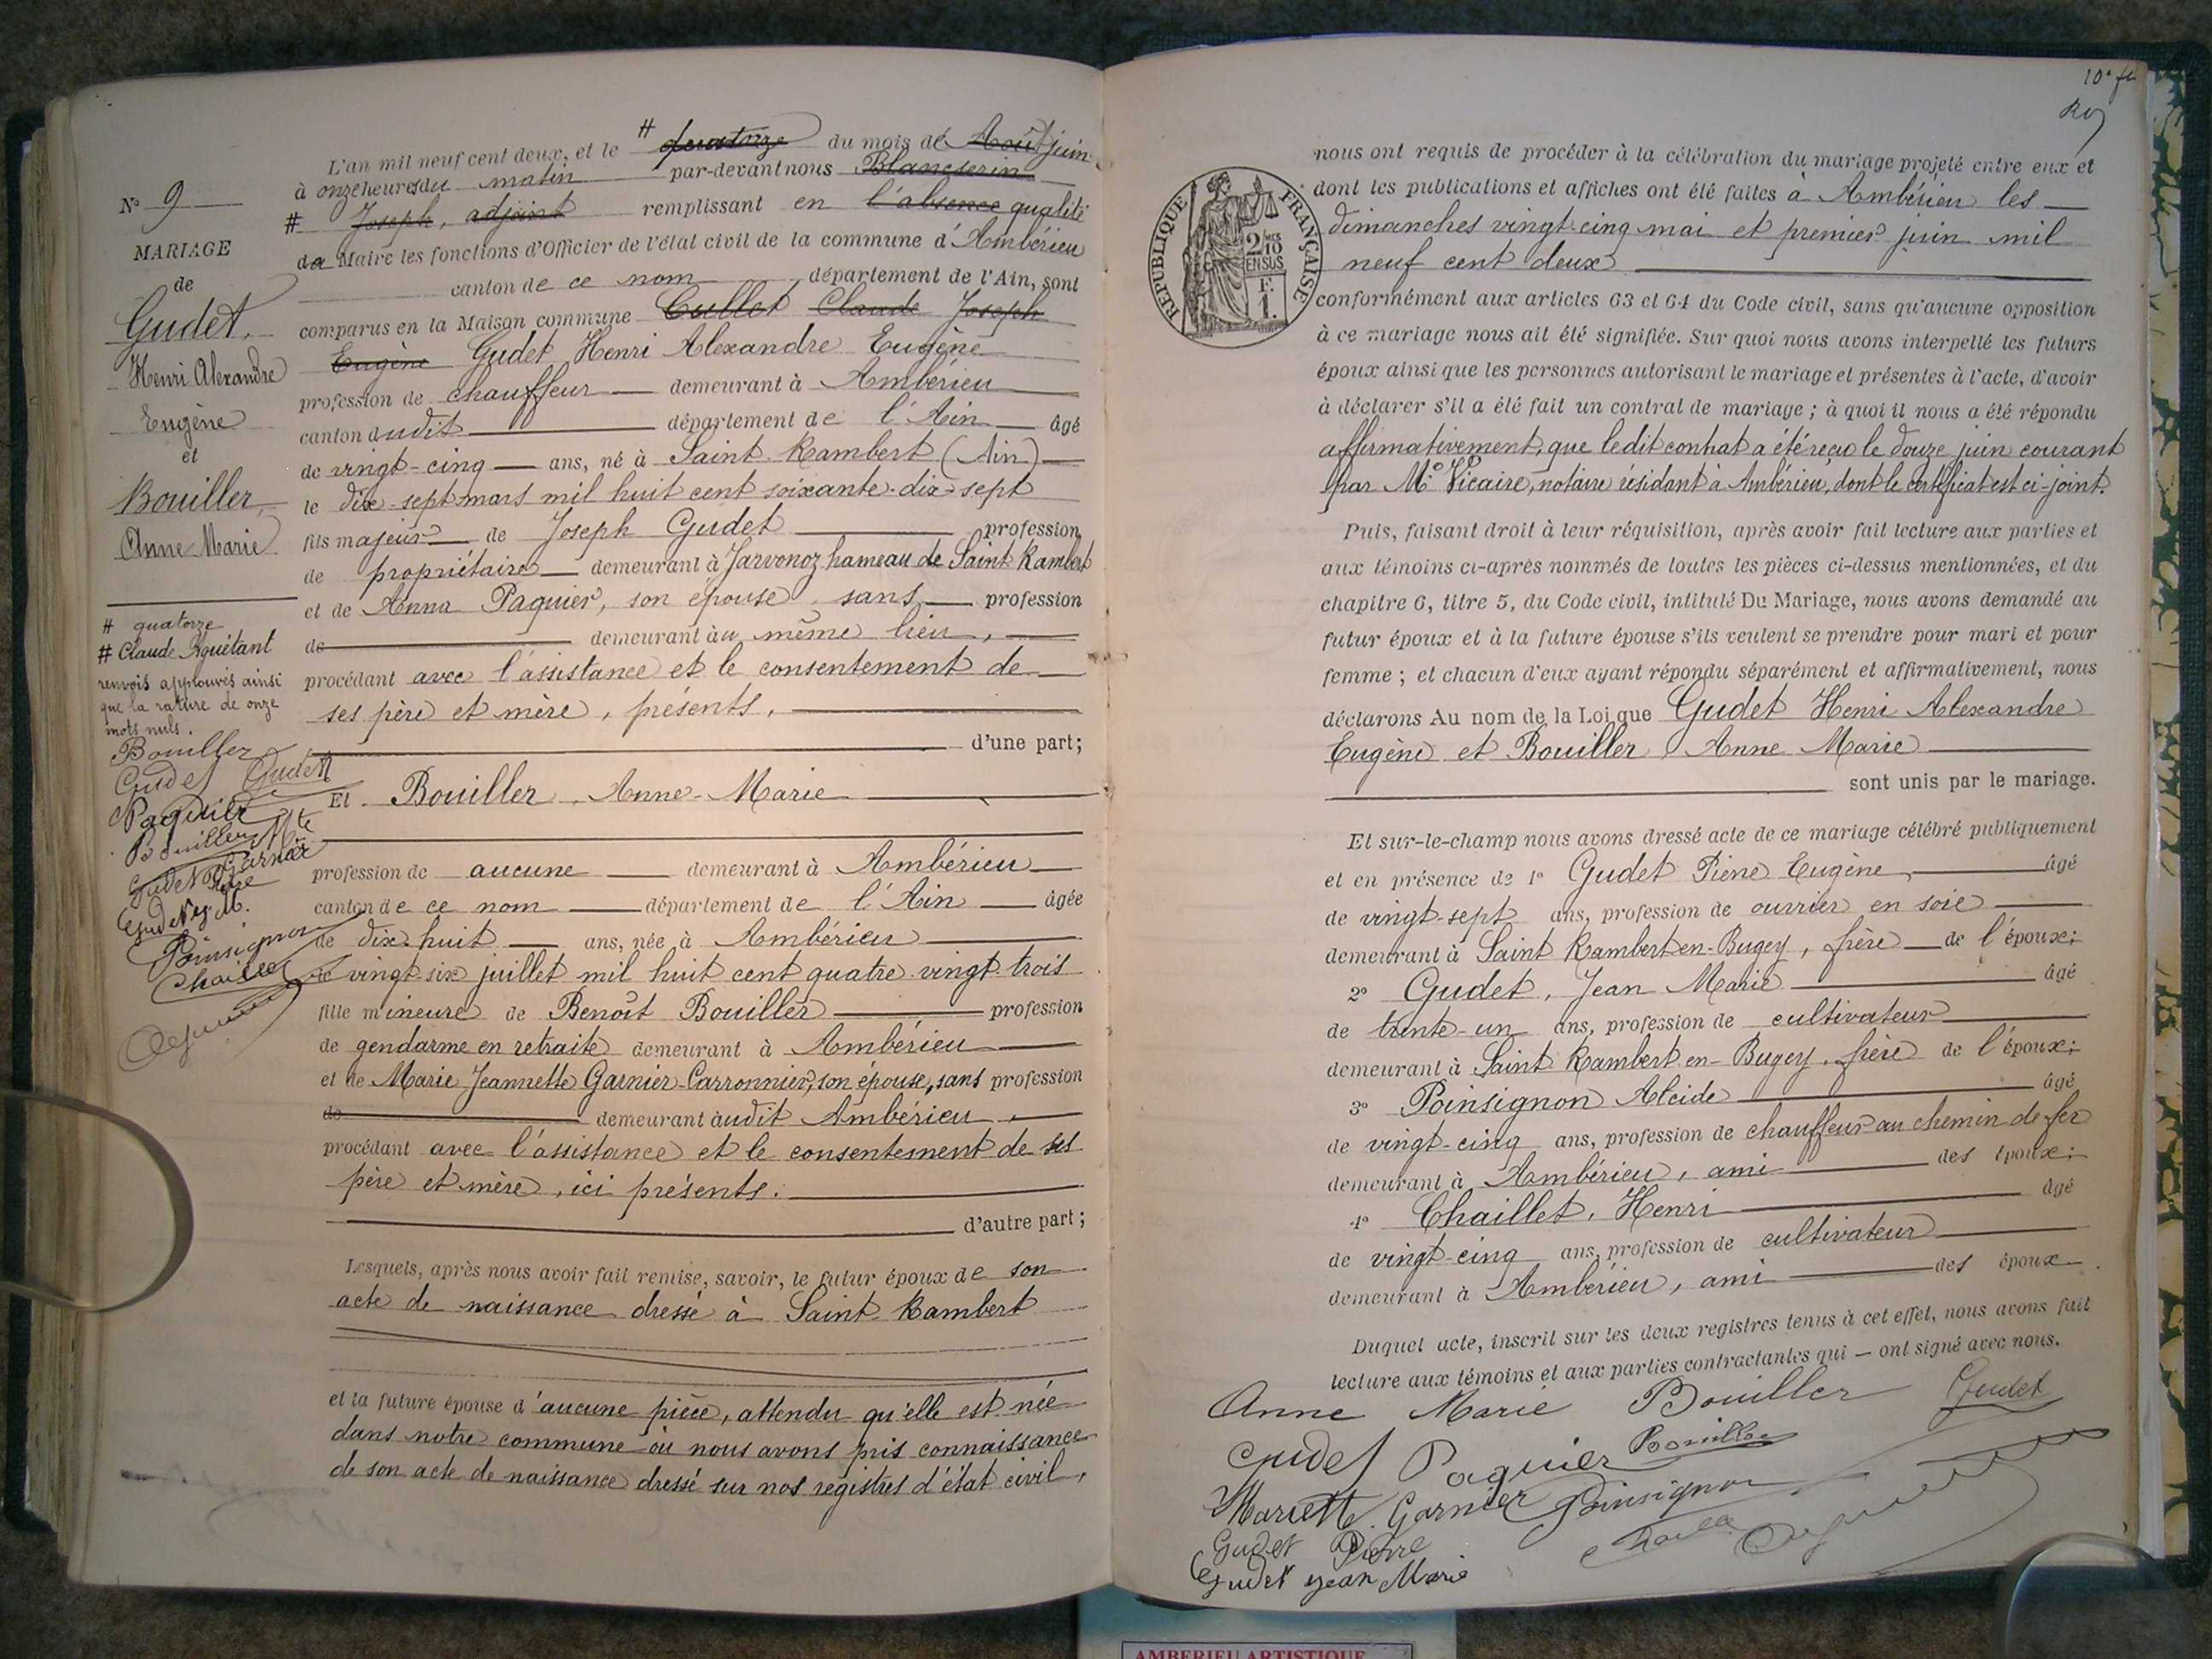 N° 9
MARIAGE
de
Gudet,
Henri Alexandre
Eugène
et
Bouiller,
Anne Marie
# quatorze
# Claude Aguétant
renvois approuvés ainsi
que la rature de onze
mots nuls.
Bouiller
Gudet Gudet
Paquier
Bouiller Mte
Garnier
Gudet Pierre
Gudet J. M.
Poinsignon
Chaillet
L'an mil neuf cent deux, et le # quatorze du mois de Août juin
à onze heures du matin par-devant nous Blancserin
# Joseph, adjoint remplissant en l'absence qualité
de Maire les fonctions d'Officier de l'état civil de la commune d'Ambérieu
canton de ce nom, département de l'Ain, sont
comparus en la Maison commune Cullet Claude Joseph
Eugène Gudet Henri Alexandre Eugène
profession de chauffeur demeurant à Ambérieu
canton dudit département de l'Ain âgé
de vingt-cinq ans, né à Saint Rambert (Ain)
le dix-sept mars mil huit cent soixante-dix-sept
fils majeur de Joseph Gudet profession
de propriétaire demeurant à Javornoz hameau de Saint Rambert
et de Anna Paquier, son épouse sans profession
de demeurant au même lieu,
procédant avec l'assistance et le consentement de
ses père et mère, présents,
d'une part;
Et Bouiller Anne-Marie
profession de aucune demeurant à Ambérieu
canton de ce nom département de l'Ain âgée
de dix-huit ans, née à Ambérieu
le vingt-six juillet mil huit cent quatre vingt-trois
fille mineure de Benoît Bouiller profession
de gendarme en retraite demeurant à Ambérieu
et de Marie Jeannette Garnier-Carronnier, son épouse, sans profession
de demeurant audit Ambérieu,
procédant avec l'assistance et le consentement de ses
père et mère, ici présents.
d'autre part;
Lesquels, après nous avoir fait remise, savoir, le futur époux de son
acte de naissance dressé à Saint Rambert
et la future épouse d'aucune pièce, attendu qu'elle est née
dans notre commune où nous avons pris connaissance
de son acte de naissance dressé sur nos registres d'état civil,
10e ft
RÉPUBLIQUE FRANÇAISE
2/10
EN SUS
F.
1.
nous ont requis de procéder à la célébration du mariage projeté entre eux et
dont les publications et affiches ont été faites à Ambérieu les
dimanches vingt-cinq mai et premier juin mil
neuf cent deux
conformément aux articles 63 et 64 du Code civil, sans qu'aucune opposition
à ce mariage nous ait été signifiée. Sur quoi nous avons interpellé les futurs
époux ainsi que les personnes autorisant le mariage et présentes à l'acte, d'avoir
à déclarer s'il a été fait un contrat de mariage; à quoi il nous a été répondu
affirmativement, que ledit contrat a été reçu le douze juin courant
par Me Vicaire, notaire résidant à Ambérieu, dont le certificat est ci-joint.
Puis, faisant droit à leur réquisition, après avoir fait lecture aux parties et
aux témoins ci-après nommés de toutes les pièces ci-dessus mentionnées, et du
chapitre 6, titre 5, du Code civil, intitulé Du Mariage, nous avons demandé au
futur époux et à la future épouse s'ils veulent se prendre pour mari et pour
femme; et chacun d'eux ayant répondu séparément et affirmativement, nous
déclarons Au nom de la Loi que Gudet Henri Alexandre
Eugène et Bouiller Anne Marie
sont unis par le mariage.
Et sur-le-champ nous avons dressé acte de ce mariage célébré publiquement
et en présence de 1° Gudet Pierre Eugène, âgé
de vingt-sept ans, profession de ouvrier en soie
demeurant à Saint Rambert en-Bugey, frère de l'époux;
2° Gudet, Jean Marie âgé
de trente-un ans, profession de cultivateur
demeurant à Saint Rambert en-Bugey, frère de l'époux;
3° Poinsignon Alcide âgé
de vingt-cinq ans, profession de chauffeur au chemin de fer
demeurant à Ambérieu, ami des époux;
4° Chaillet, Henri âgé
de vingt-cinq ans, profession de cultivateur
demeurant à Ambérieu, ami des époux.
Duquel acte, inscrit sur les deux registres tenus à cet effet, nous avons fait
lecture aux témoins et aux parties contractantes qui — ont signé avec nous.
Anne Marie Bouiller Gudet
Gudet Paquier Bouiller
Mariette Garnier Poinsignon
Gudet Pierre Chaillet
Gudet Jean Marie
AMBERIEU ARTISTIQUE